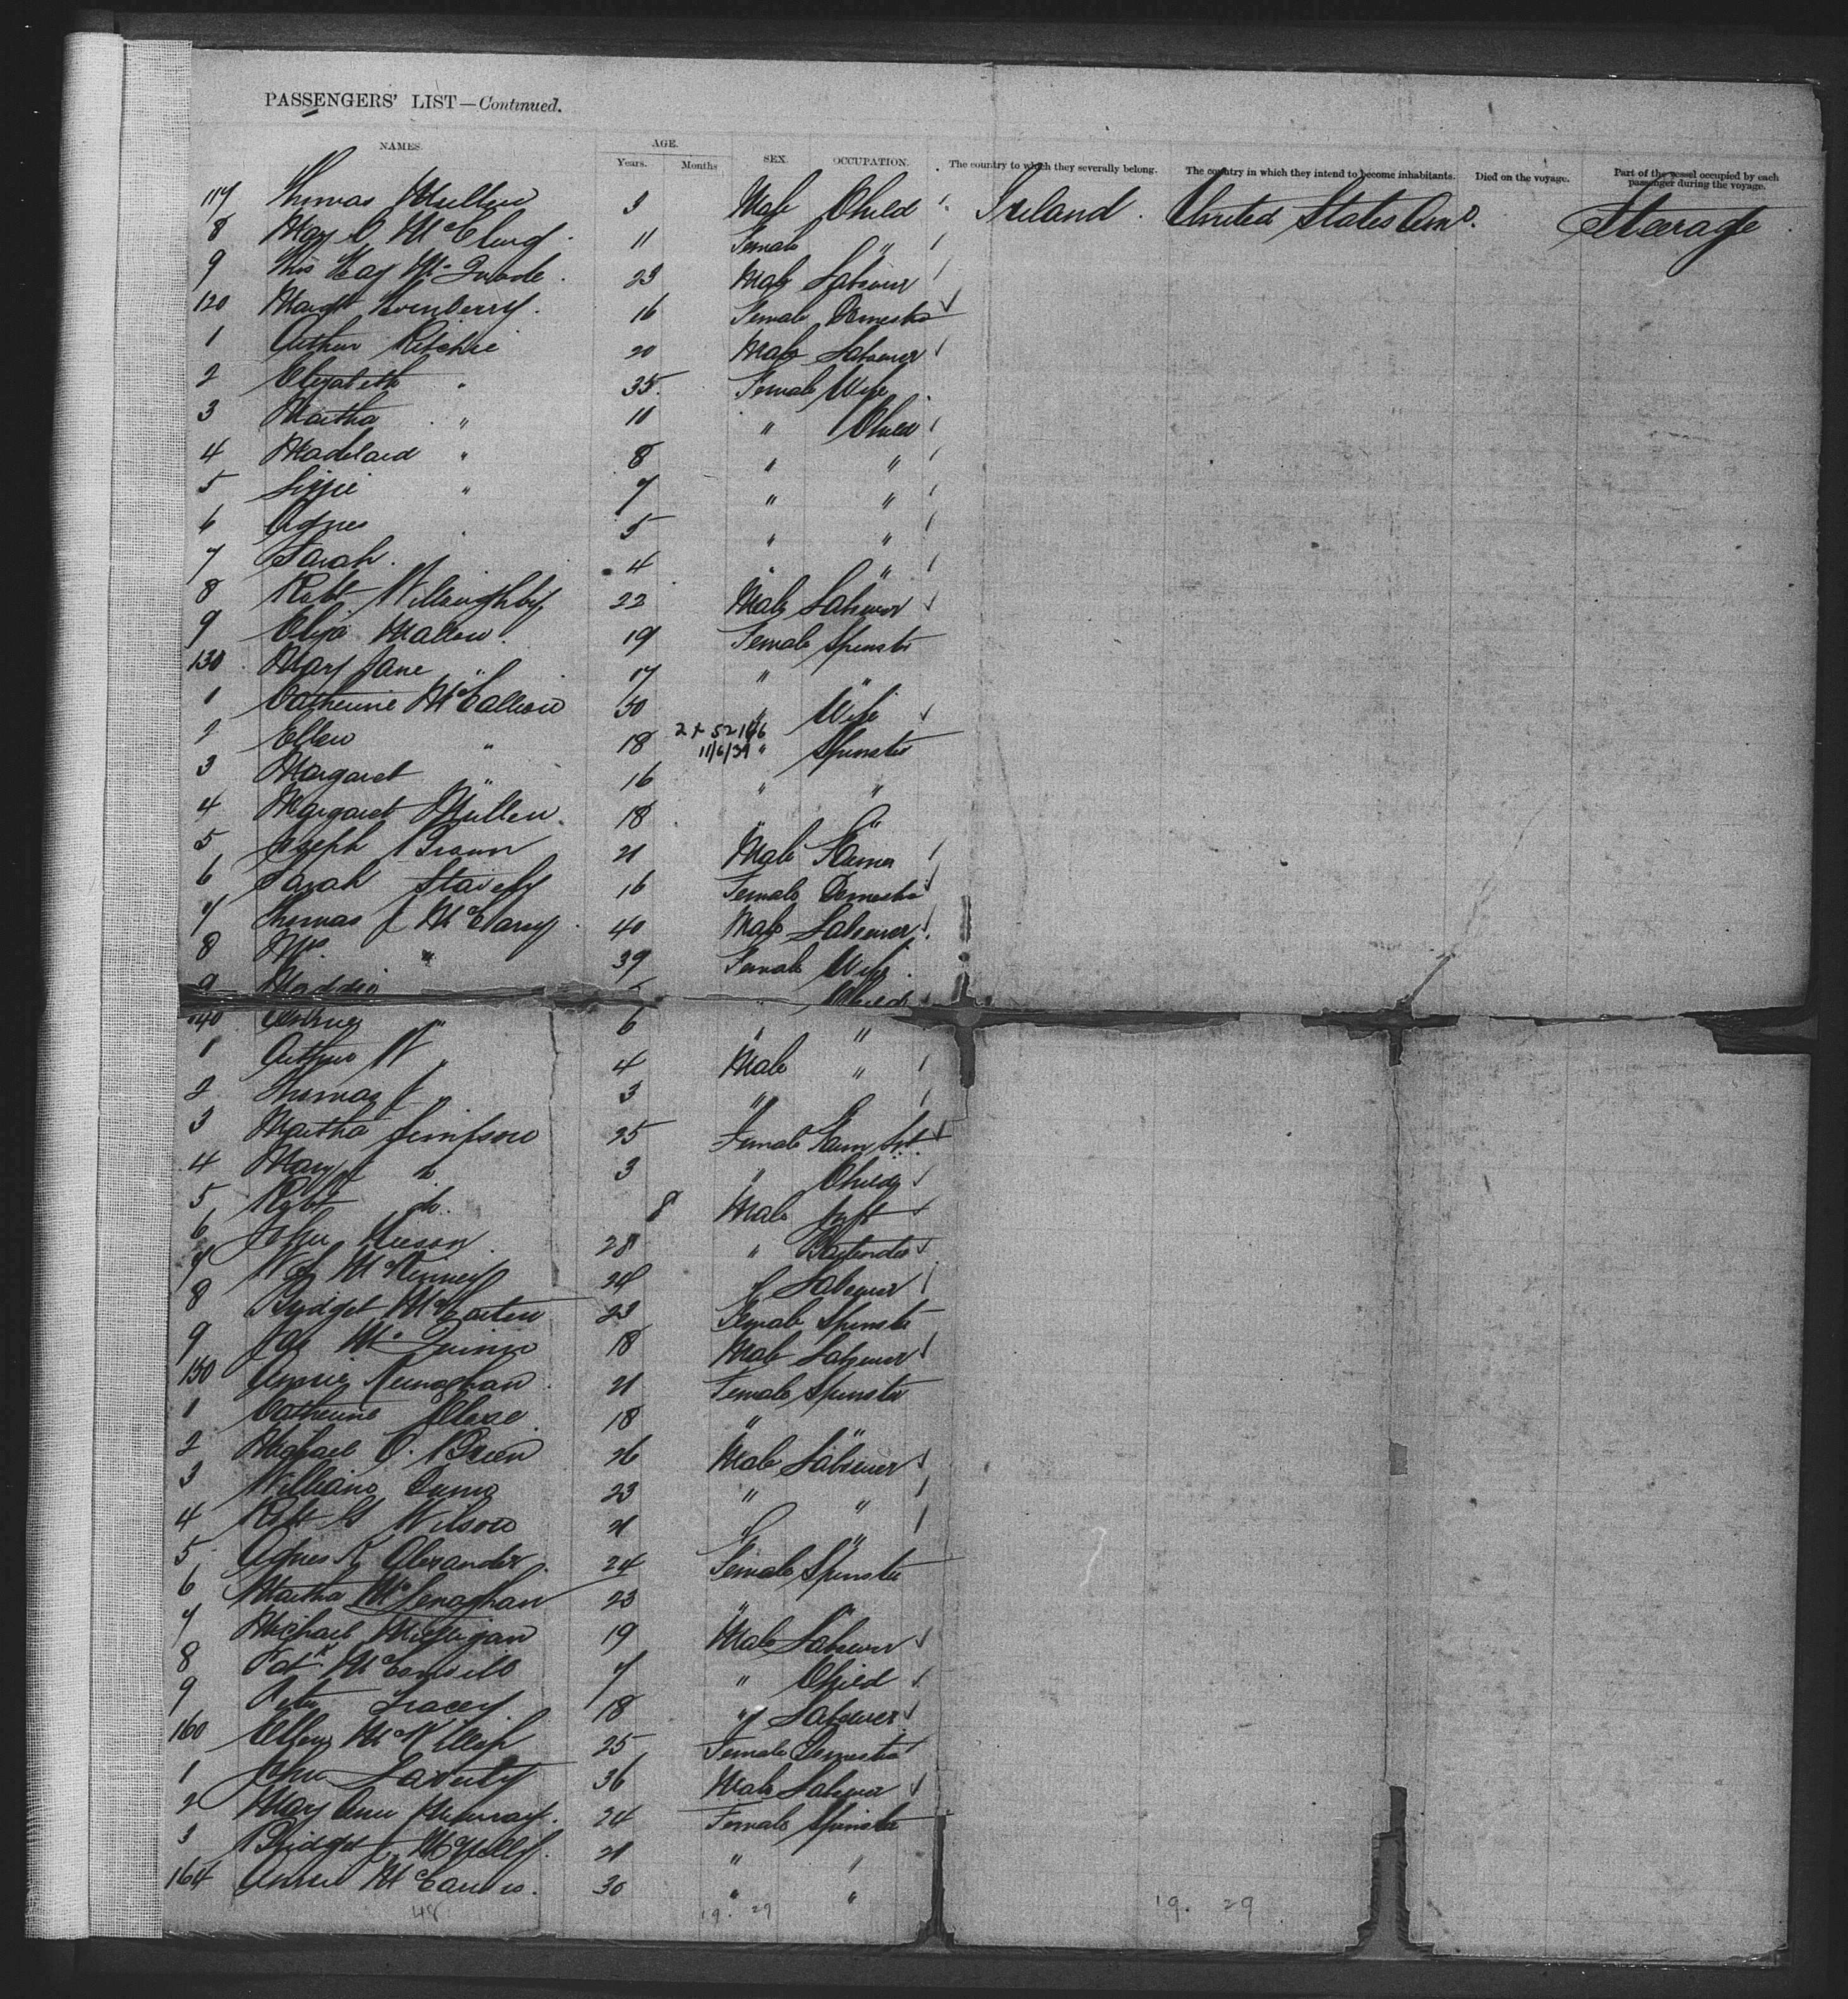 PASSENGERS' LIST—Continued.
NAMES. AGE. SEX. OCCUPATION. The country to which they severally belong. The country in which they intend to become inhabitants. Died on the voyage. Part of the vessel occupied by each passenger during the voyage.
Years. Months
117 Thomas Mullen 3 Male Child Ireland. United States Ama. Stearage
8 May McClurg 11 Female "
9 McQuade 23 Male Labourer
120 Margt 16 Female Domestic
1 Arthur Ritchie 20 Male Labourer
2 Elizabeth " 35 Female Wife
3 Martha " 11 " Child
4 " 8 " "
5 Lizzie " 7 " "
6 Agnes " 5 " "
7 Sarah 4 " "
8 Robt Willoughby 22 Male Labourer
9 Eliza Mallen 19 Female Spinster
130 Mary Jane " 17 " "
1 Catherine McCallion 50 " Wife
2 Ellen " 18 2x-52106 11/6/39 " Spinster
3 Margaret " 16 " "
4 Margaret Mullen 18 " "
5 Joseph Brown 21 Male Farmer
6 Sarah Stavely 16 Female Domestic
7 Thomas J McClarey 40 Male Labourer
8 Mrs " 39 Female Wife
9 Child
140 " 6 " "
1 Arthur W " 4 Male "
2 Thomas J " 3 " "
3 Martha Simpson 25 Female Farm Svt
4 Mary J do 3 " Child
5 Robt do 8 Male Inft
6 John 28 " Bartender
7 Wm McKinney 24 " Labourer
8 Bridget McCarten 23 Female Spinster
9 Jas McQuinn 18 Male Labourer
150 Annie Kernaghan 21 Female Spinster
1 Catherine 18 " "
2 Michael O'Brien 26 Male Labourer
3 William 23 " "
4 Robt G Wilson 21 " "
5 Agnes K Alexander 24 Female Spinster
6 Martha McLenaghan 23 " "
7 Michael Milligan 19 Male Labourer
8 Patk McConvill 7 " Child
9 Peter Tracey 18 " Labourer
160 Ellen McKillop 25 Female Domestic
1 John Laverty 36 Male Labourer
2 Mary Ann Murray 24 Female Spinster
3 Bridget J McNelly 21 " "
164 Annie McCambs 30 " "
48 19. 29 19. 29